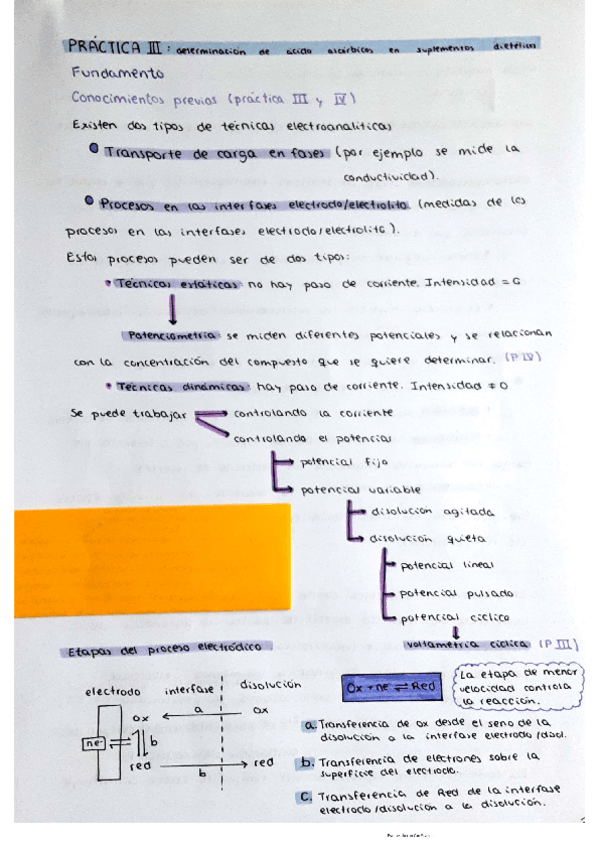 PRÁCTICA III: determinación de ácido ascórbico en suplementos dietético
Fundamento
Conocimientos previos (práctica III y IV)
Existen dos tipos de técnicas electroanalíticas
Transporte de carga en fases (por ejemplo se mide la
conductividad).
Procesos en las interfases electrodo/electrolito. (medidas de los
procesos en las interfases electrodo/electrolito).
Estos procesos pueden ser de dos tipos:
Técnicas estáticas no hay paso de corriente. Intensidad = 0
Potenciometría se miden diferentes potenciales y se relacionan
con la concentración del compuesto que se quiere determinar. (P IV)
Técnicas dinámicas: hay paso de corriente. Intensidad ≠ 0
Se puede trabajar → controlando la corriente
controlando el potencial
potencial fijo
potencial variable
disolución agitada
disolución quieta
potencial lineal
potencial pulsado
potencial cíclico
Etapas del proceso electródico
voltametría cíclica (P III)
electrodo interfase disolución
Ox + ne⁻ ⇌ Red
La etapa de menor
velocidad controla
la reacción.
ox a ox
ne⁻ b
red b red
a. Transferencia de ox desde el seno de la
disolución a la interfase electrodo/disol.
b. Transferencia de electrones sobre la
superficie del electrodo.
c. Transferencia de Red de la interfase
electrodo/disolución a la disolución.